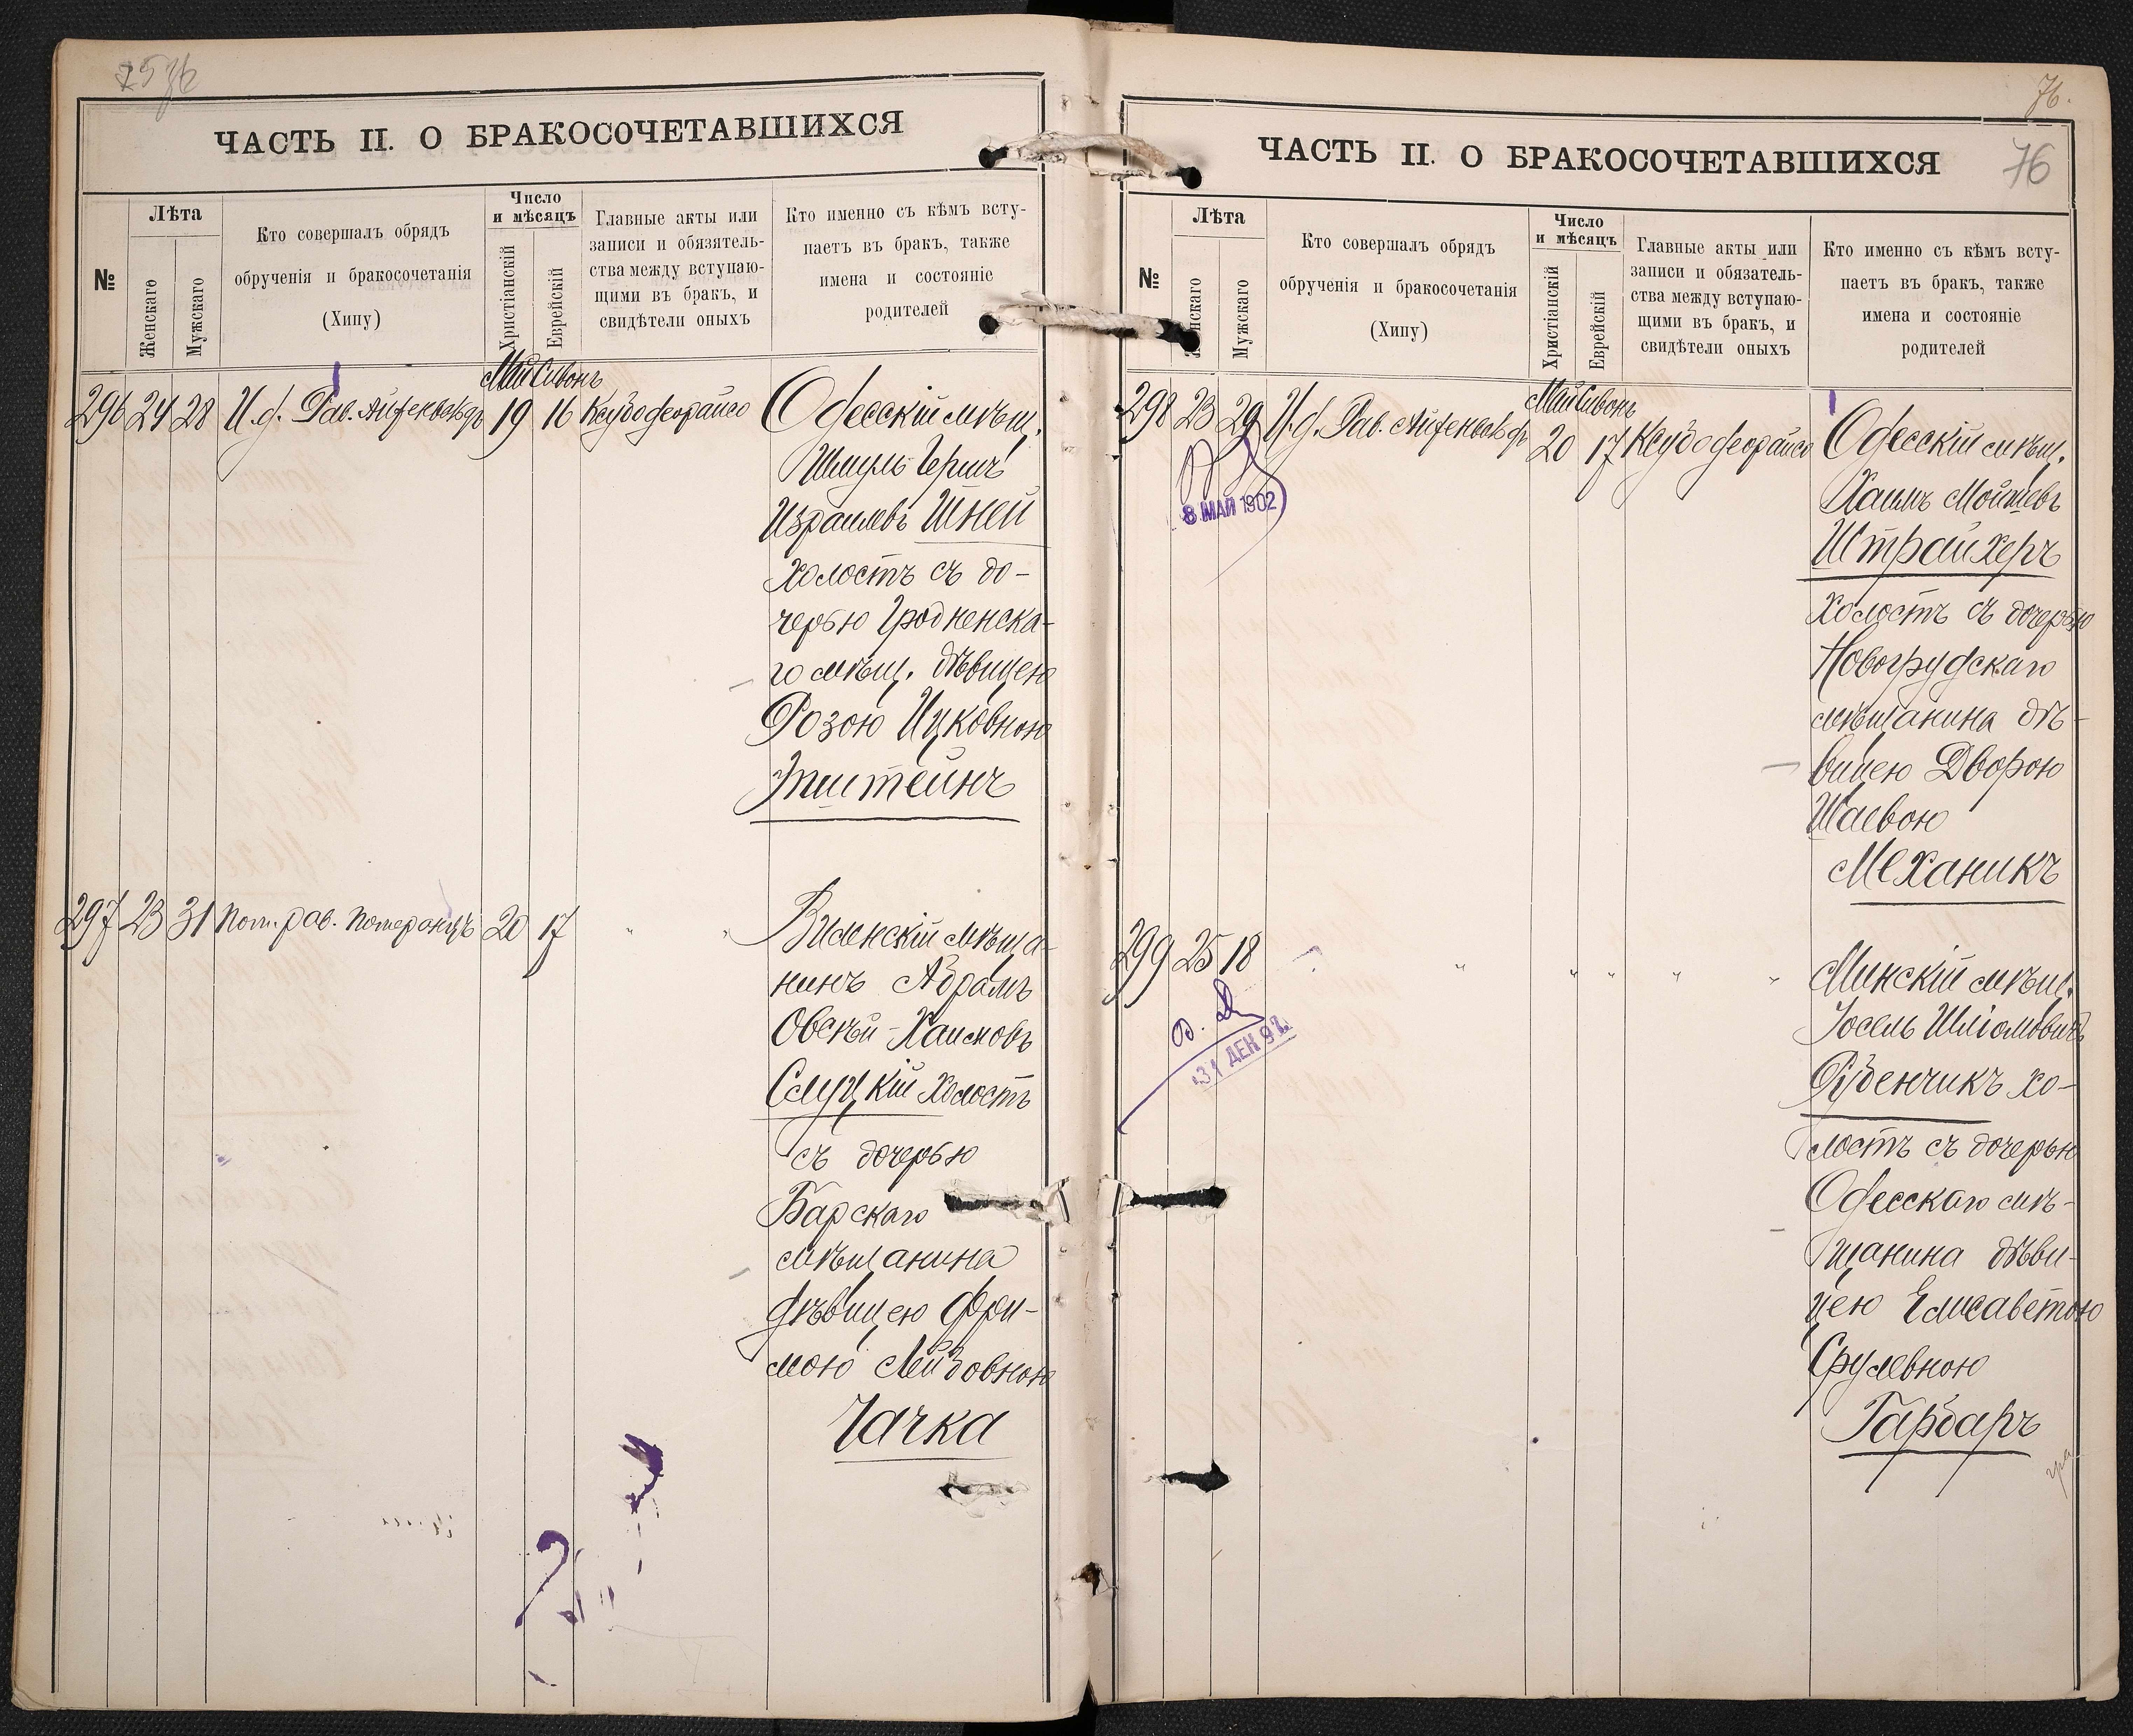 76
ЧАСТЬ II. О БРАКОСОЧЕТАВШИХСЯ
№
Лѣта
Женскаго
Мужскаго
Кто совершалъ обрядъ
обрученія и бракосочетанія
(Хипу)
Число
и мѣсяцъ
Христіанскій
Еврейскій
Главные акты или
записи и обязятель-
ства между вступаю-
щими въ бракъ, и
свидѣтели оныхъ
Кто именно съ кѣмъ всту-
паетъ въ бракъ, также
имена и состояніе
родителей
Май Сивонъ
296 24 28 И.д. Рав. Айзенштадтъ 19 16 Ксубо деорайсо Одесскій мѣщ.
Шмуль Гершъ
Израилевъ Шней
холостъ съ до-
черью Гродненска-
го мѣщ. дѣвицею
Розою Ицковною
Эпштейнъ
297 23 31 Пом. рав. Померанцъ 20 17 " " Виленскій мѣща-
нинъ Абрамъ
Овсѣй-Хаимовъ
Слуцкій холостъ
съ дочерью
Барскаго
мѣщанина
дѣвицею Фри-
мою Лейбовною
Чачка
76.
ЧАСТЬ II. О БРАКОСОЧЕТАВШИХСЯ
76
№
Лѣта
нскаго
Мужскаго
Кто совершалъ обрядъ
обрученія и бракосочетанія
(Хипу)
Число
и мѣсяцъ
Христіанскій
Еврейскій
Главные акты или
записи и обязатель-
ства между вступаю-
щими въ бракъ, и
свидѣтели оныхъ
Кто именно съ кѣмъ всту-
паетъ въ бракъ, также
имена и состояніе
родителей
Май Сивонъ
298 23 29 И.д. Рав. 20 17 Ксубо деорайсо Одесскій мѣщ.
8 МАЙ 1902
Хаимъ Мойшевъ
Штрайхеръ
холостъ съ дочерью
Новогрудскаго
мѣщанина дѣ-
вицею Дворою
Шаевою
Механикъ
299 25 18 " " " " " Минскій мѣщ.
31 ДЕК 92
Іосель Шліомовичъ
Рубенчикъ хо-
лостъ съ дочерью
Одесскаго мѣ-
щанина дѣви-
цею Елисаветою
Срулевною
Гарбаръ